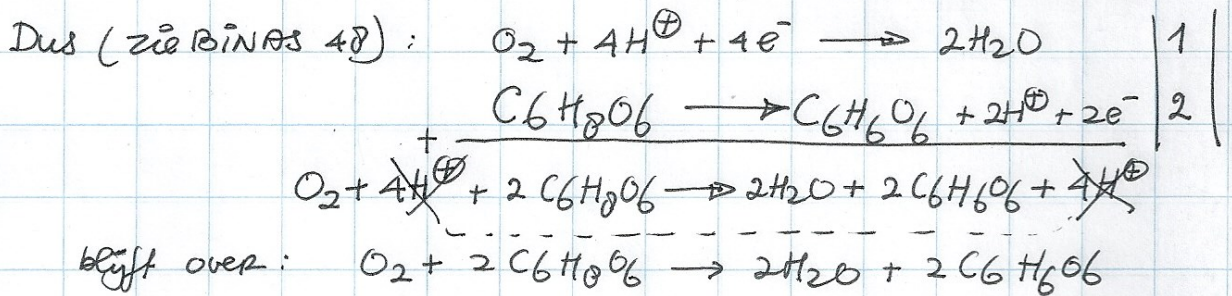 Dus (zie BINAS 48): O₂ + 4H⊕ + 4e⁻ → 2H₂O | 1 |
C₆H₈O₆ → C₆H₆O₆ + 2H⊕ + 2e⁻ | 2 |
+
O₂ + 4H⊕ + 2 C₆H₈O₆ → 2H₂O + 2 C₆H₆O₆ + 4H⊕
blijft over: O₂ + 2 C₆H₈O₆ → 2H₂O + 2 C₆H₆O₆